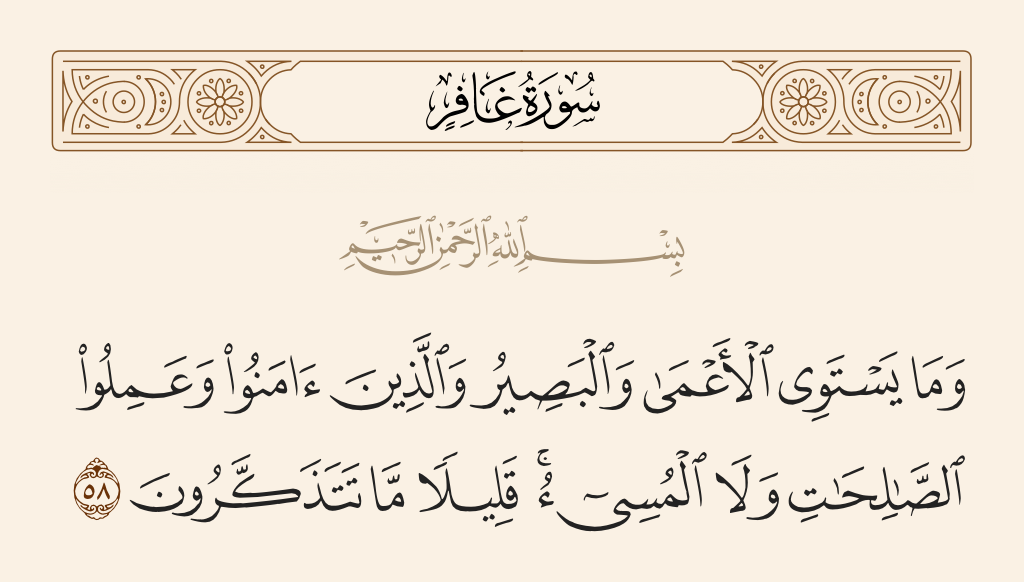 سُورَةُ غَافِرٍ
بِسْمِ ٱللَّهِ ٱلرَّحْمَٰنِ ٱلرَّحِيمِ
وَمَا يَسْتَوِى ٱلْأَعْمَىٰ وَٱلْبَصِيرُ وَٱلَّذِينَ ءَامَنُوا۟ وَعَمِلُوا۟
ٱلصَّـٰلِحَـٰتِ وَلَا ٱلْمُسِىٓءُ ۚ قَلِيلًا مَّا تَتَذَكَّرُونَ ٥٨